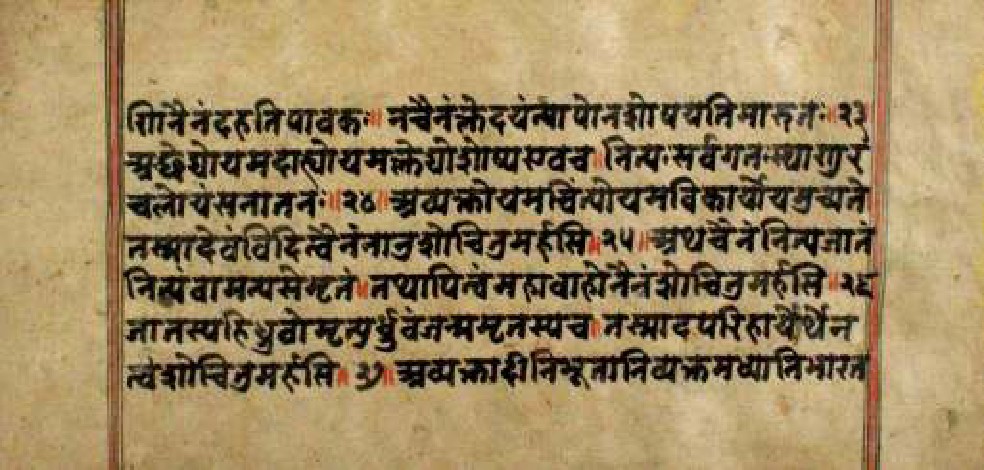 णिनैनंदहतिपावकः॥ नचैनंक्लेदयंत्यापोनशोषयतिमारुतः॥२३॥
अछेद्योयमदाह्योयमक्लेद्योशोष्यएवच॥नित्यःसर्वगतःस्थाणुर
चलोयंसनातनः॥२४॥ अव्यक्तोयमचिंत्योयमविकार्योयमुच्यते
तस्मादेवंविदित्वैनंनानुशोचितुमर्हसि॥२५॥ अथचैनंनित्यजातं
नित्यंवामन्यसेमृतं॥तथापित्वंमहाबाहोनैनंशोचितुमर्हसि॥२६
जातस्यहिध्रुवोमृत्युर्ध्रुवंजन्ममृतस्यच॥तस्मादपरिहार्येर्थेन
त्वंशोचितुमर्हसि॥२७॥अव्यक्तादीनिभूतानिव्यक्तमध्यानिभारत